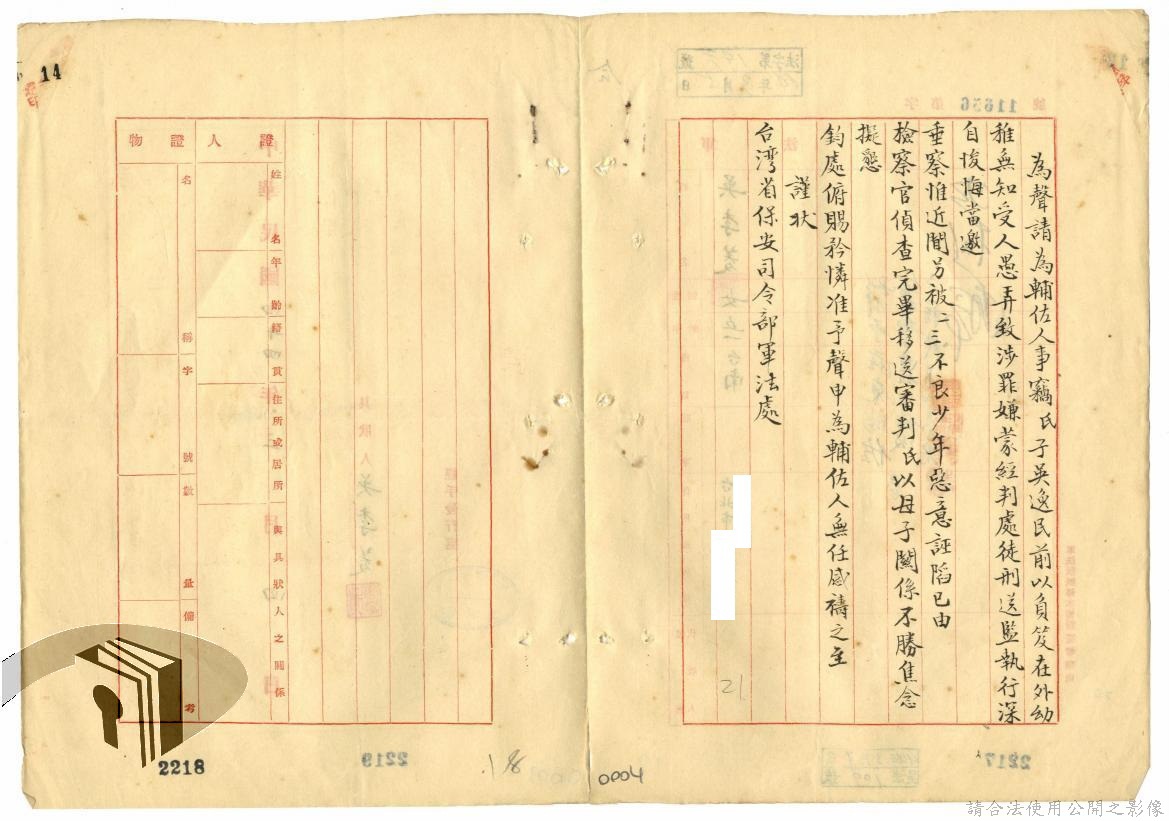 為聲請為輔佐人事竊氏子吳逸民前以負笈在外幼
稚無知受人愚弄致涉罪嫌蒙經判處徒刑送監執行深
自悛悔當邀
垂察惟近間另被二三不良少年惡意誣陷已由
檢察官偵查完畢移送審判氏以母子關係不勝焦念
擬懇
鈞處俯賜矜憐准予聲申為輔佐人無任感禱之至
謹狀
台湾省保安司令部軍法處
21
0004
18
證人
姓名
年齡
籍貫
住所或居所
與具狀人之關係
證物
名稱
字號
數量
備考
14
2218
2219
2217
11656
請合法使用公開之影像